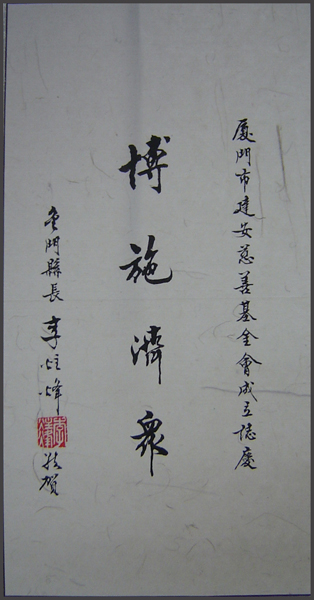 厦門市建安慈善基金會成立誌慶
博施濟眾
金門縣長李炷烽敬賀